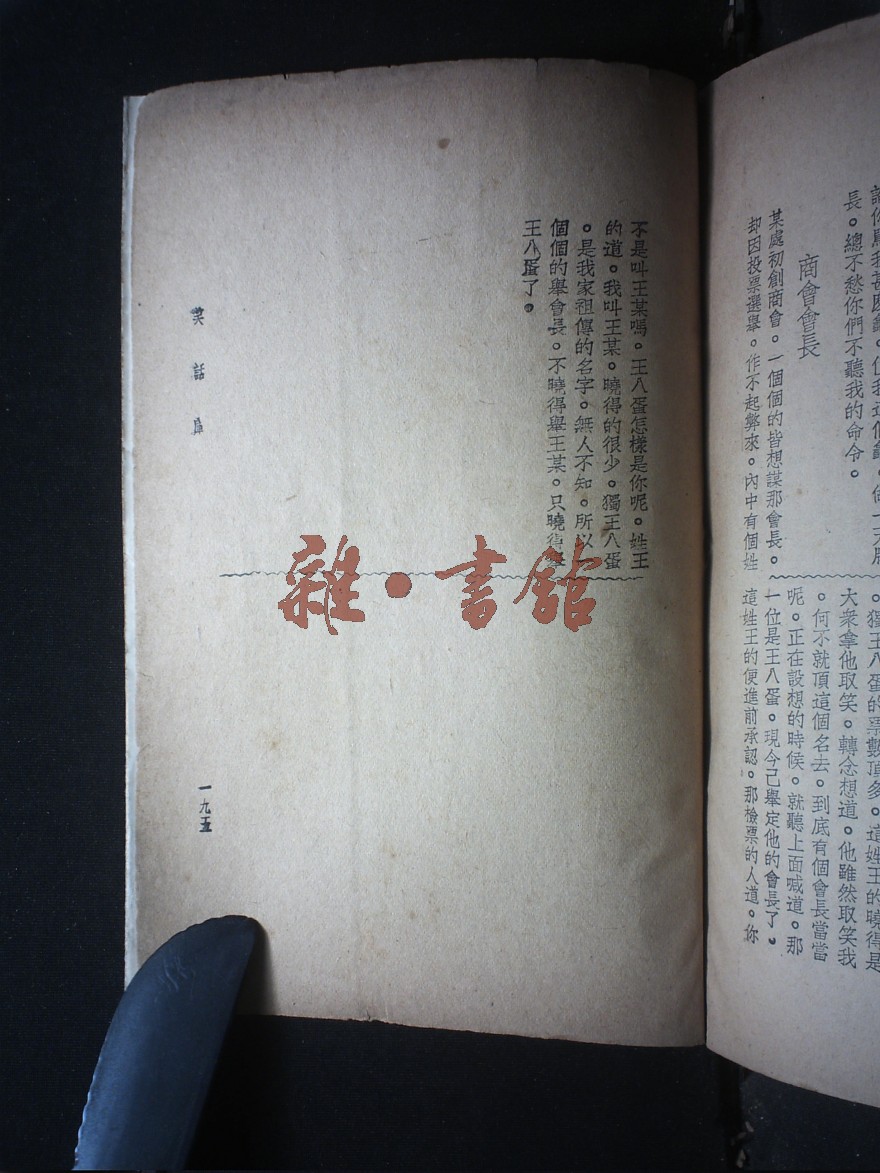 長。總不愁你們不聽我的命令。
商會會長
某處初創商會。一個個的皆想謀那會長。
却因投票選舉。作不起弊來。內中有個姓
。獨王八蛋的票數頂多。這姓王的曉得是
大衆拿他取笑。轉念想道。他雖然取笑我
。何不就頂這個名去。到底有個會長當當
呢。正在設想的時候。就聽上面喊道。那
一位是王八蛋。現今已舉定他的會長了。
這姓王的便進前承認。那檢票的人道。你
不是叫王某嗎。王八蛋怎樣是你呢。姓王
的道。我叫王某。曉得的很少。獨王八蛋
。是我家祖傳的名字。無人不知。所以
個個的舉會長。不曉得舉王某。只曉得舉
王八蛋了。
笑話
一九五
雜·書館